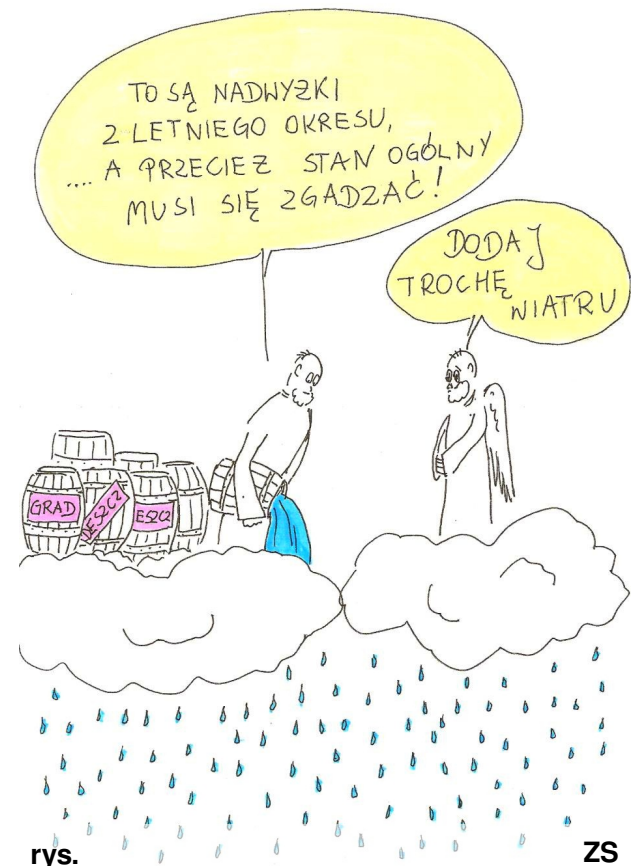 TO SĄ NADWYŻKI
Z LETNIEGO OKRESU,
.... A PRZECIEŻ STAN OGÓLNY
MUSI SIĘ ZGADZAĆ!
DODAJ
TROCHĘ
WIATRU
GRAD
DESZCZ
ESZCZ
rys.
ZS